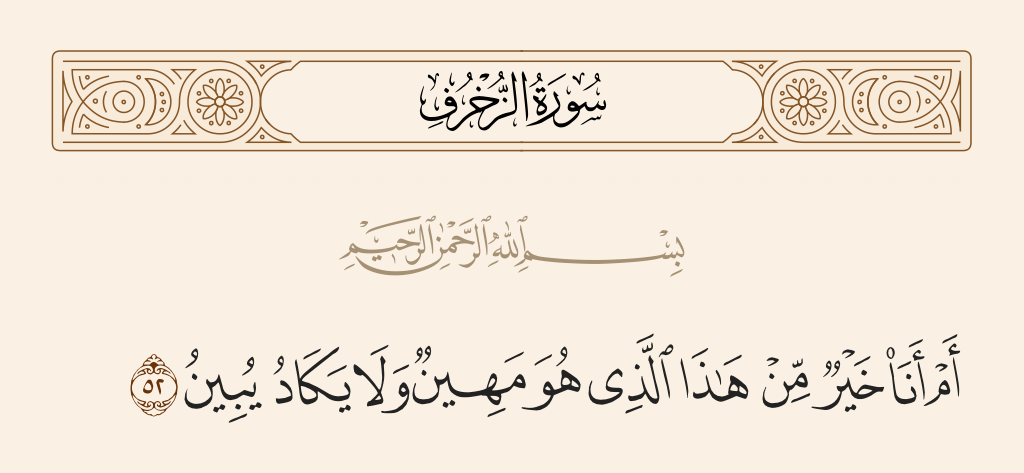 سُورَةُ الزُّخْرُفِ
بِسْمِ ٱللَّهِ ٱلرَّحْمَٰنِ ٱلرَّحِيمِ
أَمْ أَنَا۠ خَيْرٌ مِّنْ هَـٰذَا ٱلَّذِى هُوَ مَهِينٌ وَلَا يَكَادُ يُبِينُ ٥٢